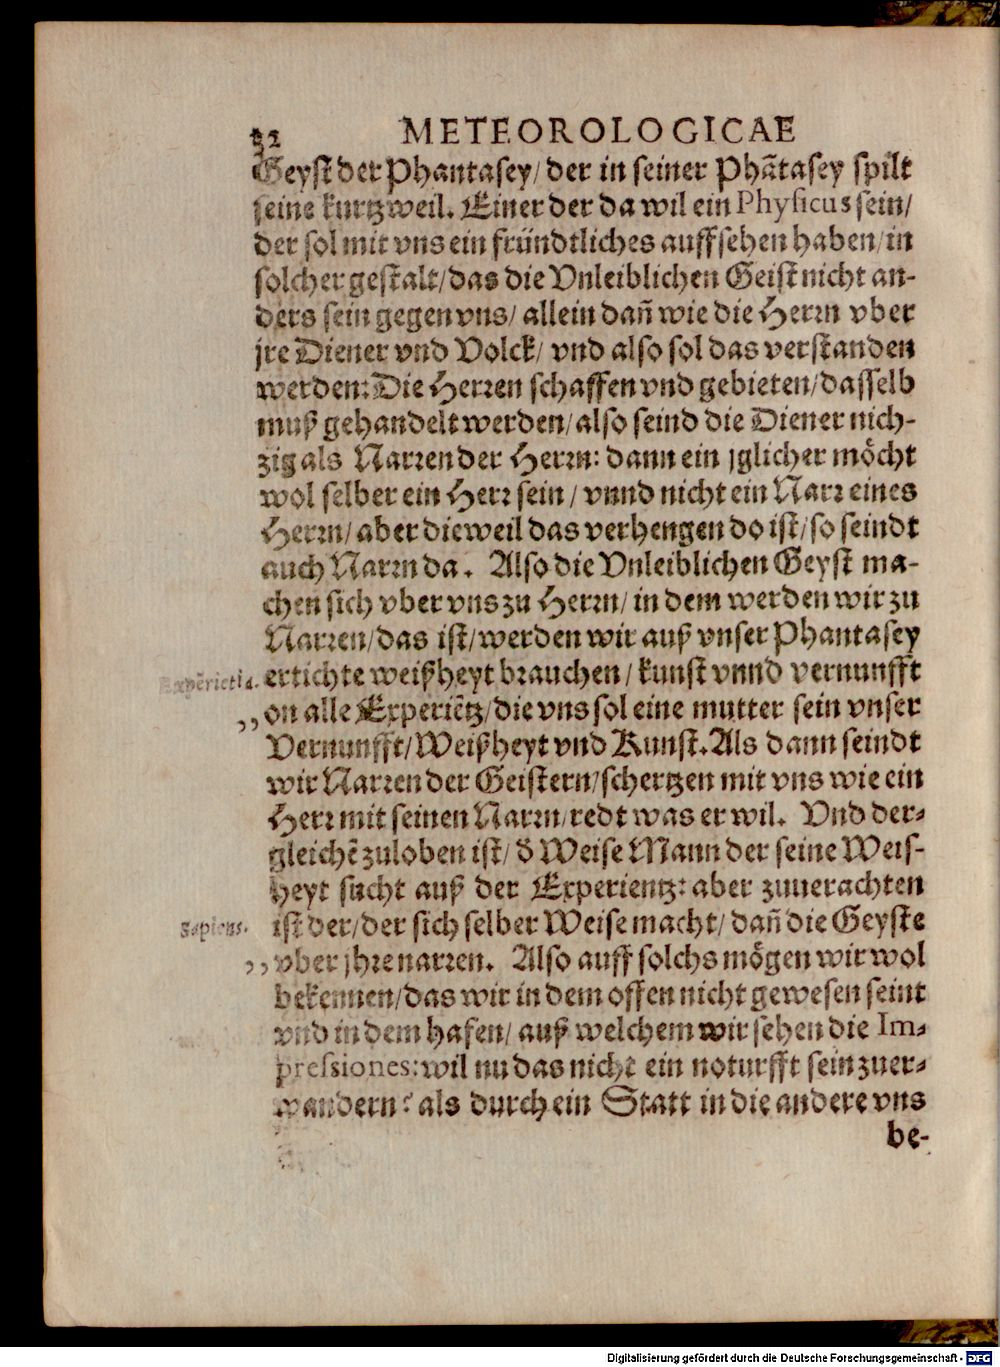 32 METEOROLOGICAE
Geyst der Phantasey/ der in seiner Phãtasey spilt
seine kurtzweil. Einer der da wil ein Physicus sein/
der sol mit vns ein fründtliches auffsehen haben/ in
solcher gestalt/ das die Vnleiblichen Geist nicht an-
ders sein gegen vns/ allein dañ wie die Herrn vber
jre Diener vnd Volck/ vnd also sol das verstanden
werden: Die Herren schaffen vnd gebieten/ dasselb
muß gehandelt werden/ also seind die Diener nich-
zig als Narren der Herrn: dann ein jglicher möcht
wol selber ein Herr sein/ vnnd nicht ein Narr eines
Herrn/ aber dieweil das verhengen do ist/ so seindt
auch Narrn da. Also die Vnleiblichen Geyst ma-
chen sich vber vns zu Herrn/ in dem werden wir zu
Narren/ das ist/ werden wir auß vnser Phantasey
Experiẽtia. ertichte weißheyt brauchen/ kunst vnnd vernunfft
,, on alle Experiẽtz/ die vns sol eine mutter sein vnser
Vernunfft/ Weißheyt vnd Kunst. Als dann seindt
wir Narren der Geistern/ schertzen mit vns wie ein
Herr mit seinen Narrn/ redt was er wil. Vnd der-
gleichẽ zuloben ist/ d̃ Weise Mann der seine Weis-
heyt sucht auß der Experientz: aber zuuerachten
Sapiens. ist der/ der sich selber Weise macht/ dañ die Geyste
,, vber jhre narren. Also auff solchs mögen wir wol
bekennen/ das wir in dem offen nicht gewesen seint
vnd in dem hafen/ auß welchem wir sehen die Im-
pressiones: wil nu das nicht ein noturfft sein zuer-
wandern? als durch ein Statt in die andere vns
be-
Digitalisierung gefördert durch die Deutsche Forschungsgemeinschaft - DFG